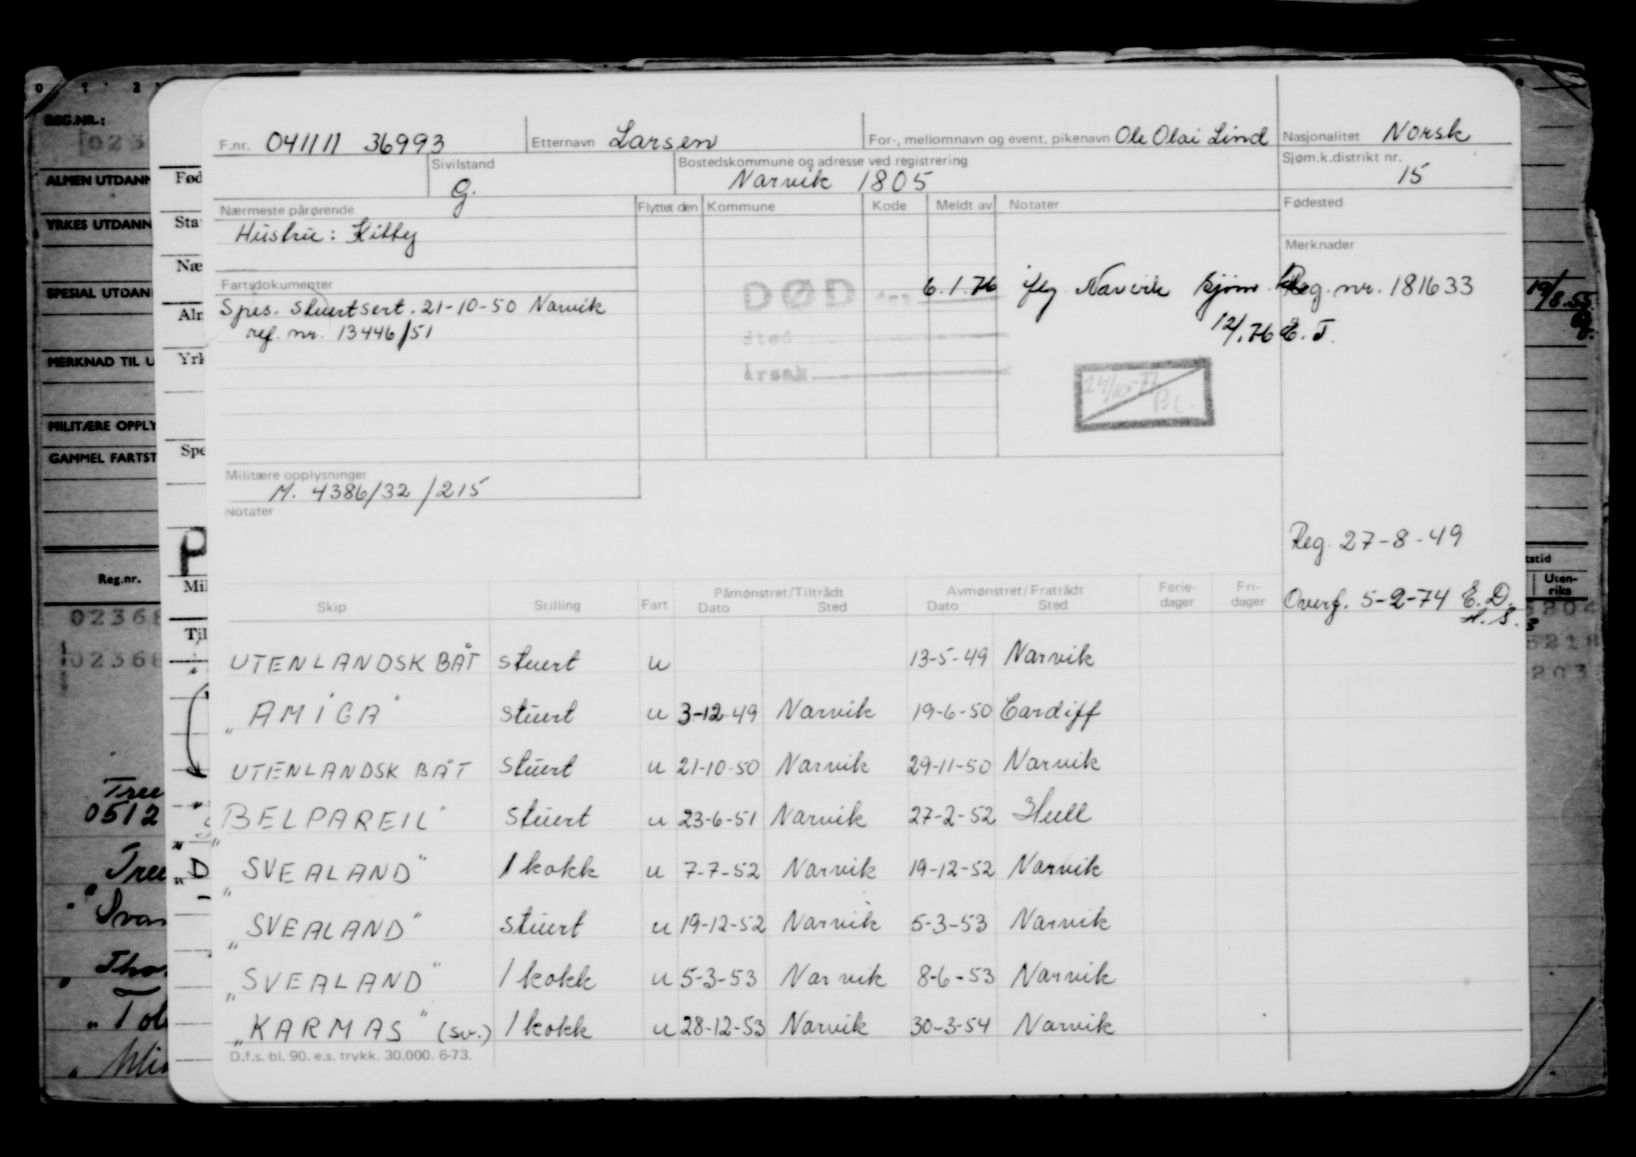 F.nr. 041111 36993 Etternavn Larsen For-, mellomnavn og event. pikenavn Ole Olai Lind Nasjonalitet Norsk
Sivilstand G. Bostedskommune og adresse ved registrering Narvik 1805 Sjøm.k.distrikt nr. 15
Nærmeste pårørende Flyttet den Kommune Kode Meldt av Notater Fødested
Hustru: Kitty
Merknader
Fartsdokumenter DØD 6.1.76 iflg. Narvik sjøm Reg. nr. 181633
Spes. Stuertsert. 21-10-50 Narvik
ref. nr. 13446/51
Sted 12/1.76 E. T.
Årsak
24/10-77
Militære opplysninger
M. 4386/32 /215
Notater
Reg. 27-8-49
Overf. 5-2-74 E.D.
H.S.
Skip Stilling Fart Påmønstret/Tiltrådt Dato Sted Avmønstret/Fratrådt Dato Sted Ferie-dager Fri-dager
UTENLANDSK BÅT stuert u 13-5-49 Narvik
"AMIGA" stuert u 3-12-49 Narvik 19-6-50 Cardiff
UTENLANDSK BÅT stuert u 21-10-50 Narvik 29-11-50 Narvik
"BELPAREIL" stuert u 23-6-51 Narvik 27-2-52 Hull
"SVEALAND" 1 kokk u 7-7-52 Narvik 19-12-52 Narvik
"SVEALAND" stuert u 19-12-52 Narvik 5-3-53 Narvik
"SVEALAND" 1 kokk u 5-3-53 Narvik 8-6-53 Narvik
"KARMAS" (sv.) 1 kokk u 28-12-53 Narvik 30-3-54 Narvik
D.f.s. bl. 90. e.s. trykk. 30.000. 6-73.
REG.NR.:
023
ALMEN UTDANN
YRKES UTDANN
SPESIAL UTDAN
MERKNAD TIL U
MILITÆRE OPPLY
GAMMEL FARTST
Reg.nr.
02368
02368
0512
Fød
Sta
Næ
Alm
Yrk
Spe
P
Mil
Til
19/8.55
Uten-
riks